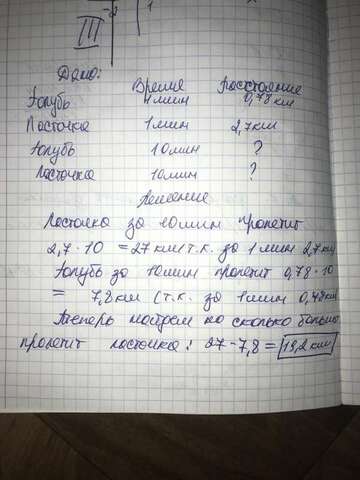 III
Дано:
Время Расстояние
Голубь 1 мин 0,78 км
Ласточка 1 мин 2,7 км
Голубь 10 мин ?
Ласточка 10 мин ?
Решение
Ласточка за 10 мин пролетит
2,7 · 10 = 27 км (т.к. за 1 мин 2,7 км
Голубь за 10 мин пролетит 0,78 · 10
= 7,8 км (т.к. за 1 мин 0,78 км
Теперь найдем на сколько больше
пролетит ласточка: 27 - 7,8 = 19,2 км